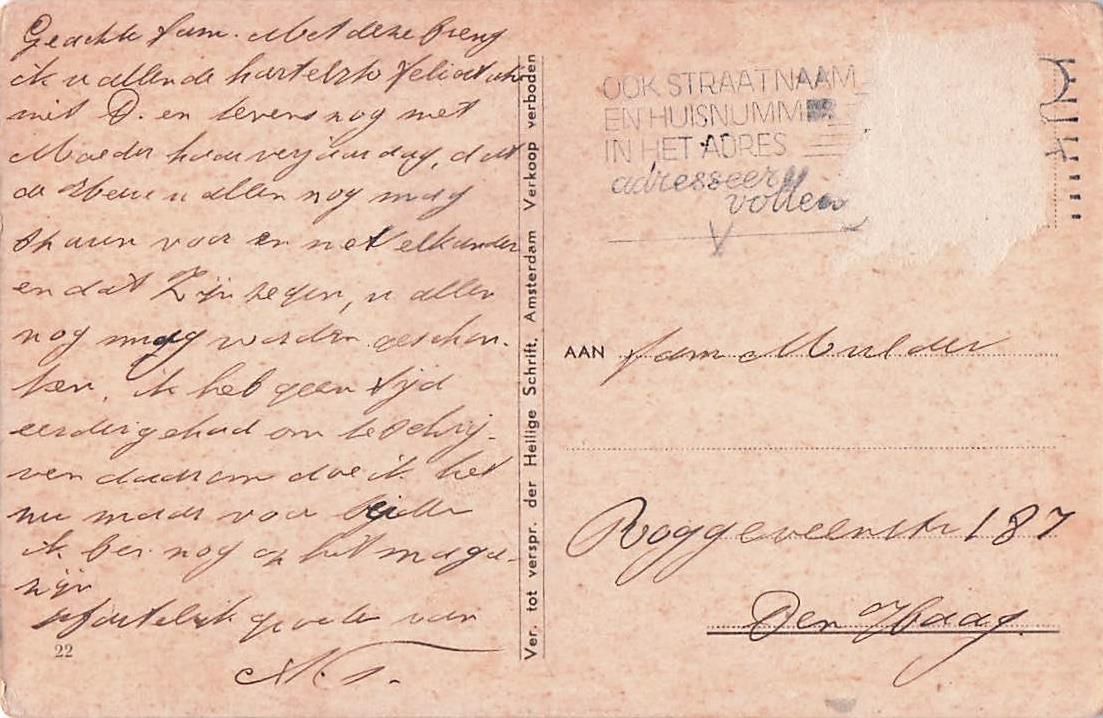 Geachte fam. Met deze breng
ik u allen de hartelijke felicitatie
met D. en tevens nog met
Moeder haar verjaardag, dat
de Heere u allen nog mag
sparen voor en met elkander
en dat Zijn zegen, u allen
nog mag worden geschon-
ken, ik heb geen tijd
eerder gehad om te schrij-
ven daarom doe ik het
nu maar voor
ik ben nog op het maga-
zijn
Hartelijk groeten van
22
Ver. tot verspr. der Heilige Schrift, Amsterdam Verkoop verboden
OOK STRAATNAAM
EN HUISNUMMER
IN HET ADRES
adresseer
AAN fam Mulder
Roggeveenstr 187
Den Haag.